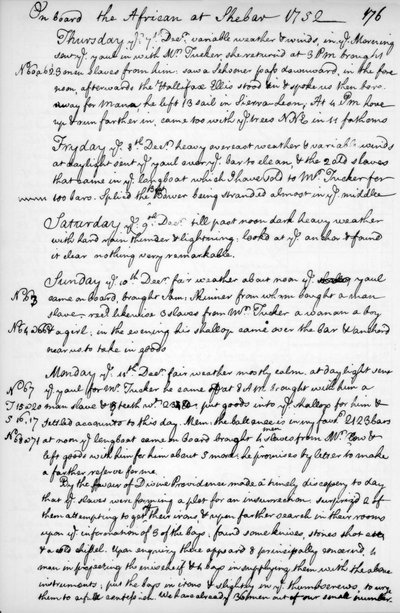 On board the African at Shebar 1752 176
Thursday ye 7th Decr variable weather & winds, in ye Morning
sent ye yaul in with Mr Tucker, she return'd at 3 PM brought
No 60 a 62 3 men slaves from him. saw a Schooner pass downward, in the fore
noon, afterwards the Hallifax Ellis stood in & spoke us then bore
away for Mana, he left 13 sail in Sierra-Leon, At 4 PM hove
up & run farther in, came too with ye trees NbE in 11 fathoms
Fryday ye 8th Decr heavy overcast weather & variable winds
at daylight sent ye yaul over ye bar to clean, & the 2 old slaves
that came in ye longboat which I have sold to Mr Tucker for
100 bars. Spliced the Bt Bower being stranded almost in ye middle
Saturday ye 9th Decr till past noon dark heavy weather
with hard rain thunder & lightning: looked at ye anchor & found
it clear nothing very remarkable.
Sunday ye 10th Decr fair weather about noon ye yaul
No 63 came on board, brought Sam: Skinner from whom bought a man
slave, rec'd likewise 3 slaves from Mr Tucker a woman a boy
No 64 a 66 & a girl; in the evening his shallop came over the bar & anchord
near us to take in goods
Monday ye 11th Decr fair weather mostly calm. at daylight sent
No 67 ye yaul for Mr Tucker he came off at 9 AM brought with him a
T 15 a 20 man slave & teeth wt put goods into ye shallop for him &
5 16. 17 settled accounts to this day. Mem: the ballance is in my favr 2123 bars
No 68 a 71 at noon ye longboat came on board brought 4 men slaves from Mr &
left goods with him for about 5 more; he promises by letter to make
a farther reserve for me.
By the favour of Divine Providence made a timely discovery to day
that ye slaves were forming a plot for an insurrection. surprized 2 of
them attempting to get off their irons, & upon farther search in their rooms
upon ye information of 3 of the boys, found some knives, stones, shot &c
& a cold chissel. Upon enquiry there appeard 8 principally concerned, 4
men in projecting the mischief & 4 boys in supplying them with the above
instruments; put the boys in irons & slightly in ye thumbscrews, to urge
them to a full confession. We have already 36 men out of our small number.